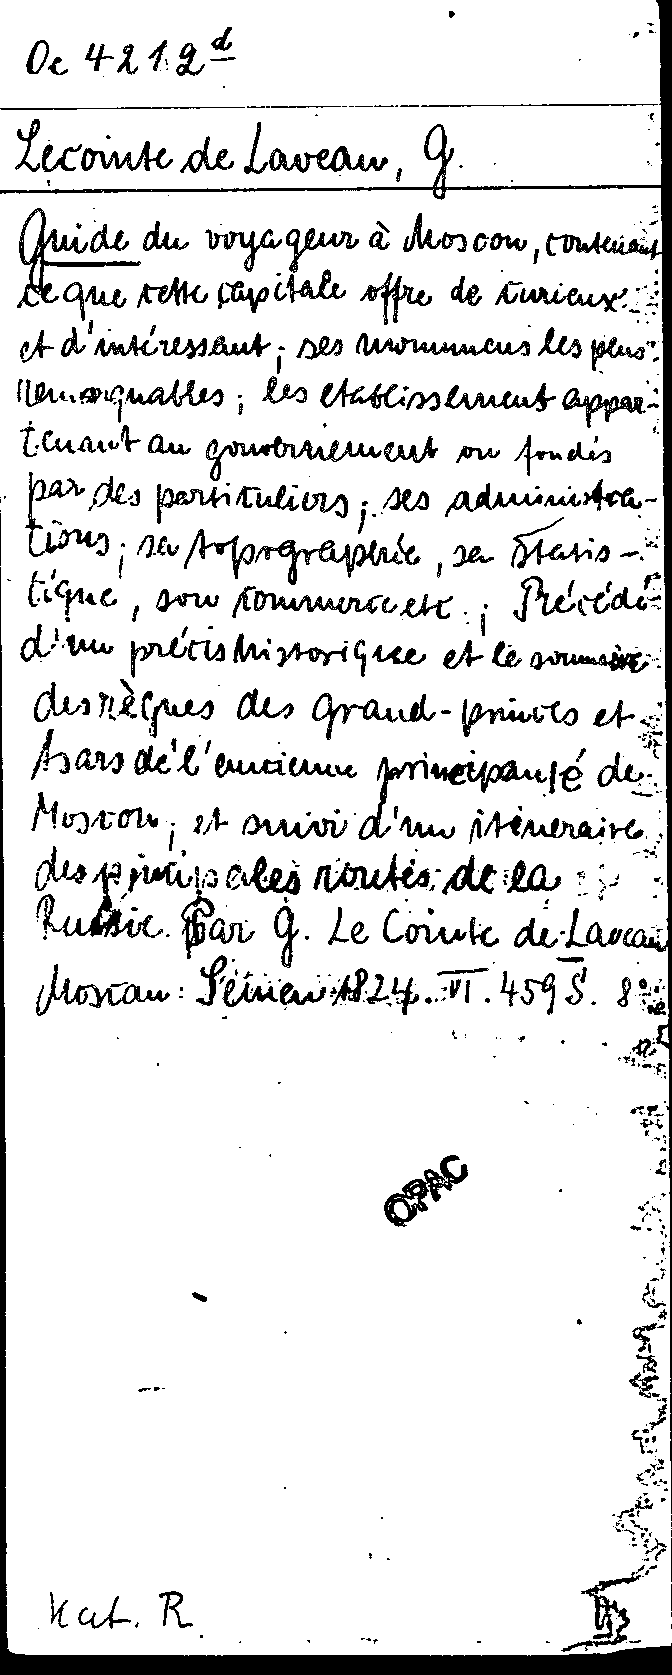 Oe 4212 d
Lecointe de Laveau, G.
Guide du voyageur à Moscou, contenant
ce que cette capitale offre de curieux
et d'intéressant; ses monumens les plus
remarquables; les etablissement appar-
tenant au gouvernement ou fondés
par des particuliers; ses administra-
tions; sa topographie, sa Statis-
tique, son commerce etc.; Précédé
d'un précis historique et le sommaire
des règnes des grand-princes et
tsars de l'ancienne principauté de
Moscou; et suivi d'un itineraire
des principales routes de la
Russie. Par G. Le Cointe de Laveau
Moscau: Semen 1824. VI. 459 S. 8°
OPAC
Kat. R